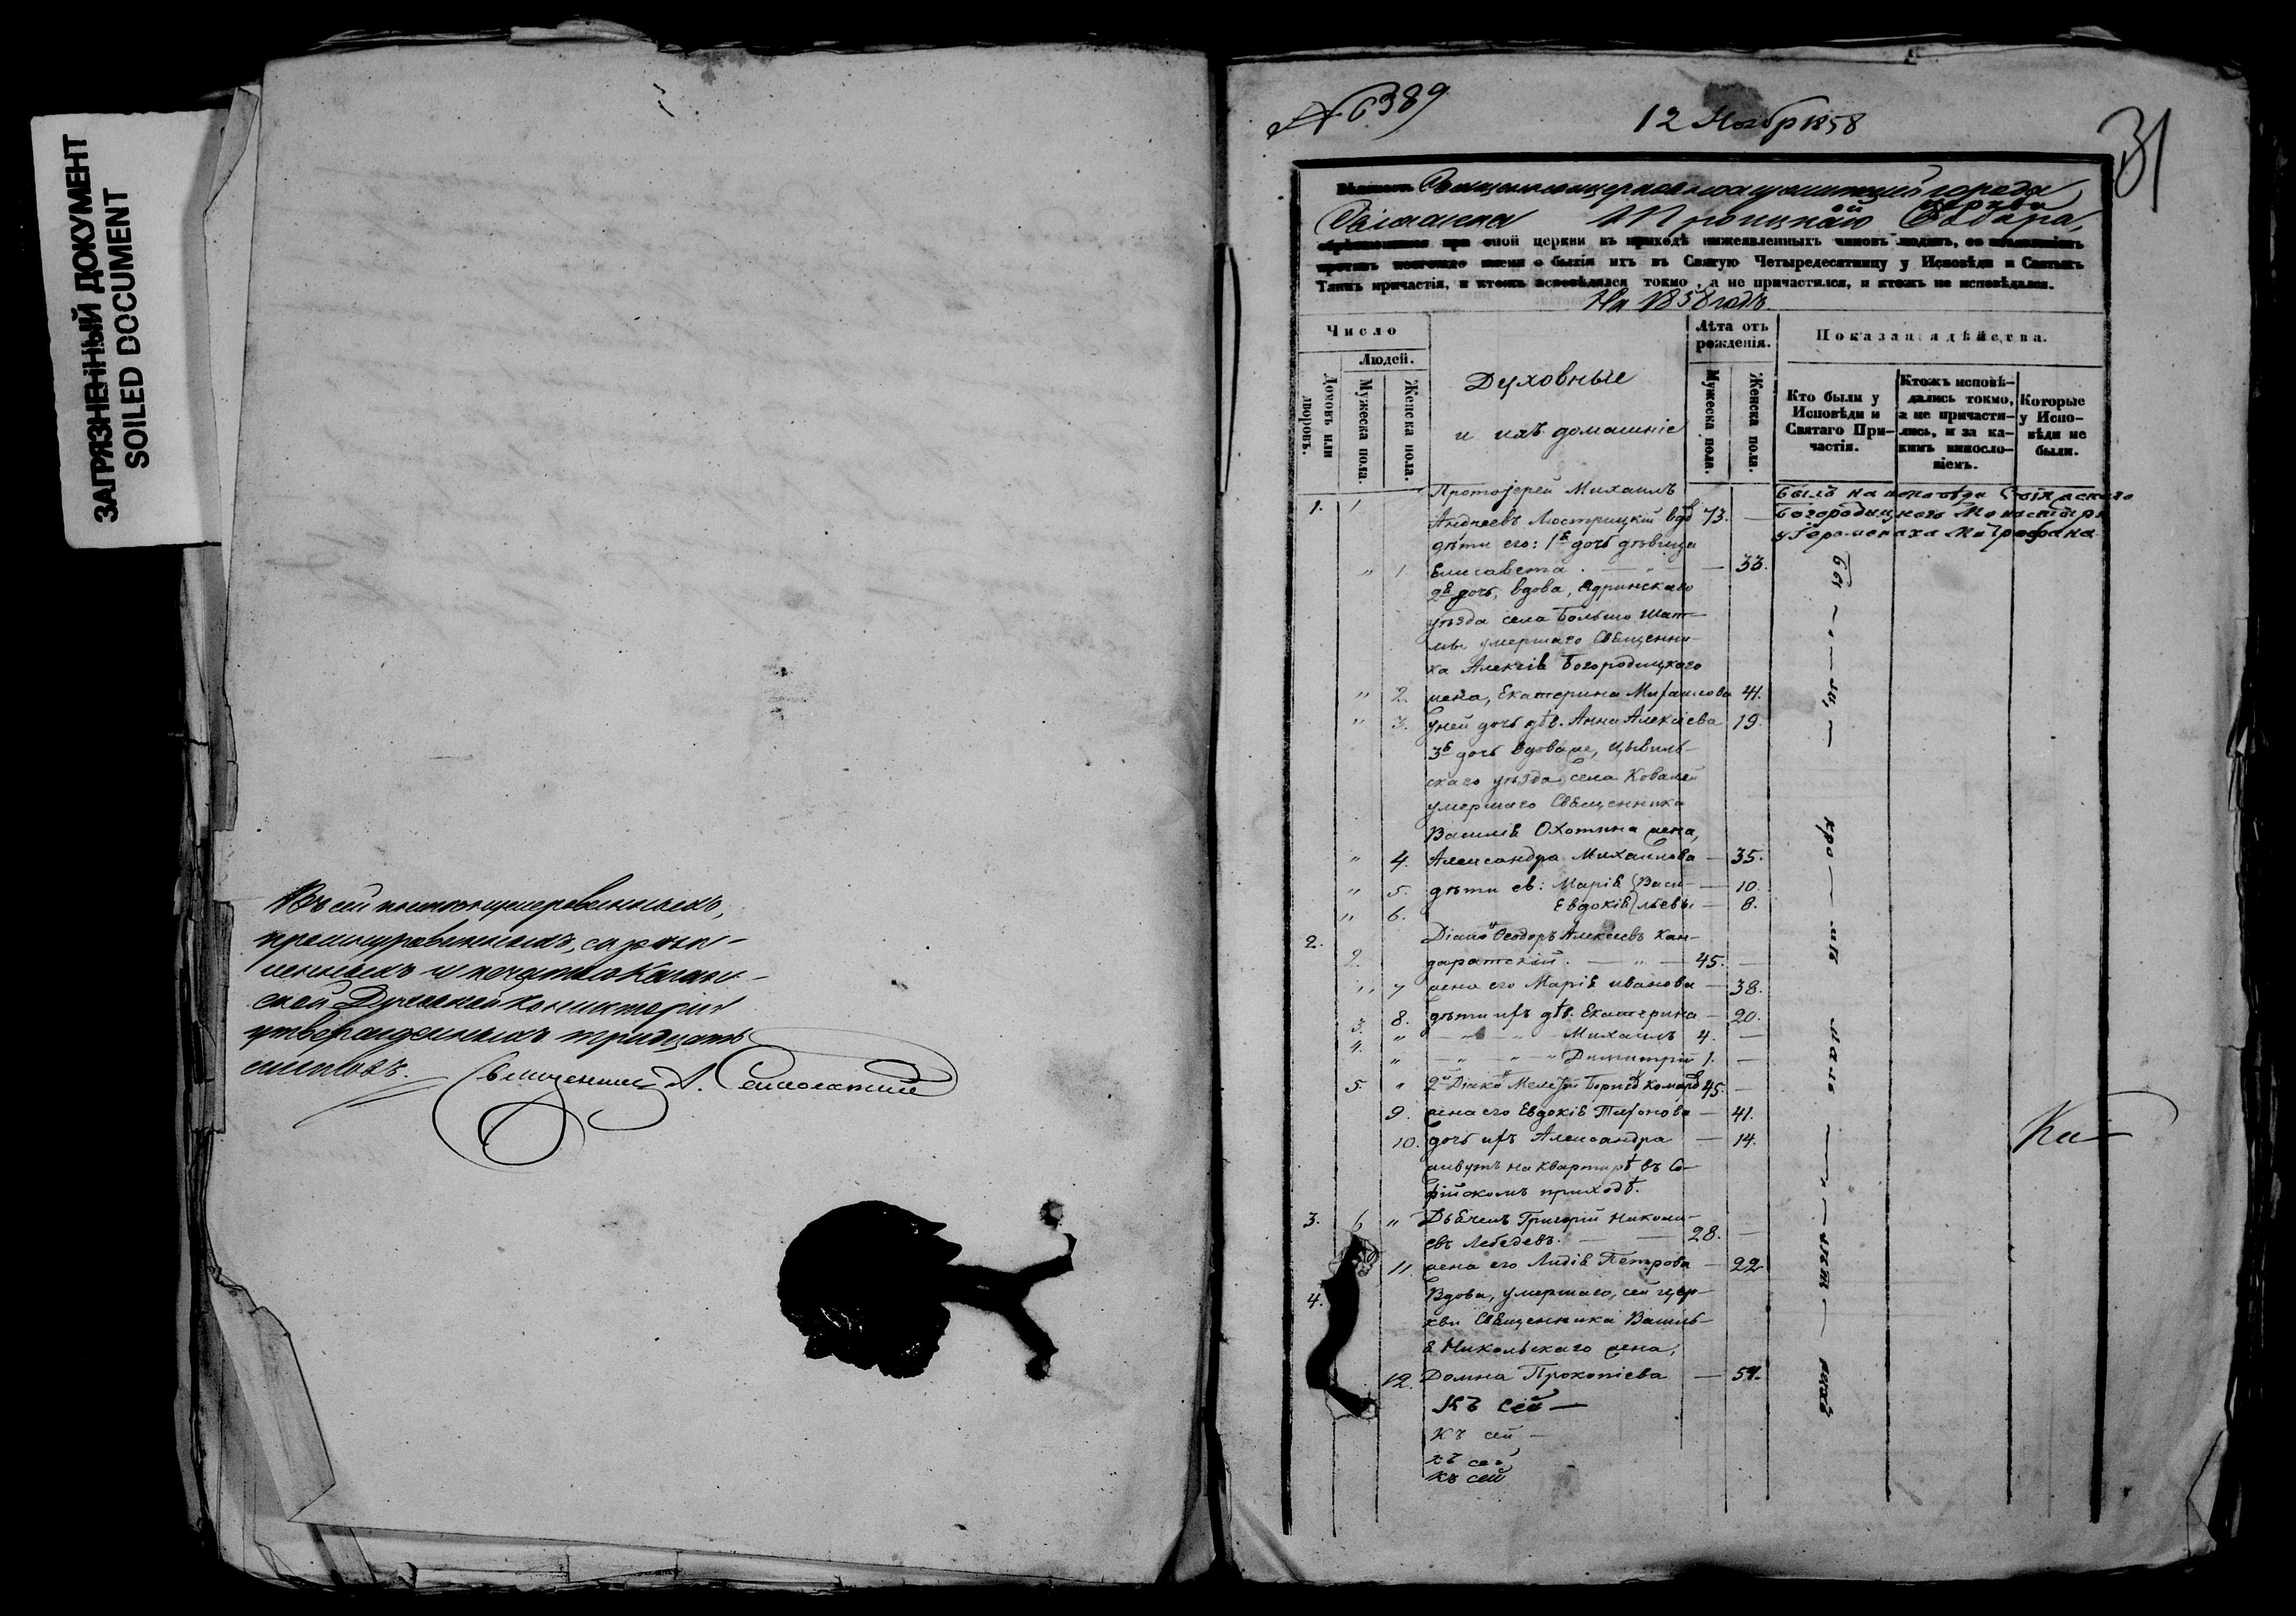 ЗАГРЯЗНЕННЫЙ ДОКУМЕНТ
SOILED DOCUMENT
Въ сей
прошнурованныхъ, скрѣп-
ленныхъ и печатью Казан-
ской Духовной Консисторіи
утвержденныхъ тридцать
листовъ.
Священникъ А.
№ 6389
12 Ноябр 1858
31
города
Троицкой Собора,
оной церкви въ приходѣ нижеявленныхъ чиновъ людяхъ, со изъявленіемъ
противъ коегождо имени о бытіи ихъ въ Святую Четыредесятницу у Исповѣди и Святыхъ
Таинъ причастія, и ктожъ исповѣдался токмо, а не причастился, и ктожъ не исповѣдался.
На 1858 годъ.
Число
Людей.
Домовъ или дворовъ.
Мужеска пола.
Женска пола.
Духовные
и ихъ домашніе
Лѣта отъ рожденія.
Мужеска пола.
Женска пола.
Показанія дѣйства.
Кто были у Исповѣди и Святаго Причастія.
Ктожъ исповѣдались токмо, а не причастились, и за какимъ винословіемъ.
Которые у Исповѣди не были.
Протоіерей Михаилъ
1. 1 Андреевъ Люстрицкій вдв 73. —
былъ на исповѣди
Богородицкаго Монастыря
у Іеромонаха Митрофана
дѣти его: 1я дочь дѣвица
" 1. Елисавета — " — 33.
2я дочь, вдова, Ядринскаго
уѣзда села Большо Шат-
мы умершаго Священни-
ка Алексія Богородицкого
" 2. жена, Екатерина Михаилова 41.
" 3. у ней дочь дѣв. Анна Алексіева 19.
3я дочь вдова же, Цывиль-
скаго уѣзда села Ковалей
умершаго Священника
Василія Охотина жена,
" 4. Александра Михаилова — 35.
" 5. дѣти ея: Марія Васи- — 10.
" 6. Евдокія льевы — 8.
2. Діаконъ Ѳеодоръ Алексіевъ Кан-
2. даратскій. — " — 45. —
" 7 жена его Марія Иванова — 38.
8. дѣти ихъ дѣв. Екатерина — 20.
3. " — " — " Михаилъ 4. —
4. " — " — " Димитрій 1. —
5. " 2й Діаконъ Мелетій 45. —
9. жена его Евдокія Тихонова — 41.
10. дочь ихъ Александра — 14.
живутъ на квартирѣ въ Со-
фійскомъ приходѣ.
3. 6 " Дьячекъ Григорій Никола-
евъ Лебедевъ. — — 28. —
11 жена его Лидія Петрова — 22
4. Вдова, умершаго, сей цер-
кви Священника Василь-
я Никольскаго жена,
12. Домна Прокопіева — 54.
Къ сей —
Къ сей —
къ сей
къ сей